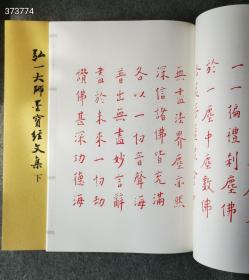 373774
弘一大師墨寶經文集 下
一一徧禮剎塵佛
於一塵中塵數佛
無盡法界塵亦然
深信諸佛皆充滿
各以一切音聲海
普出無盡妙言辭
盡於未來一切劫
讚佛甚深功德海